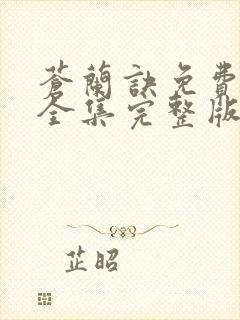 蒼蘭訣免費
全集完整版
芷昭